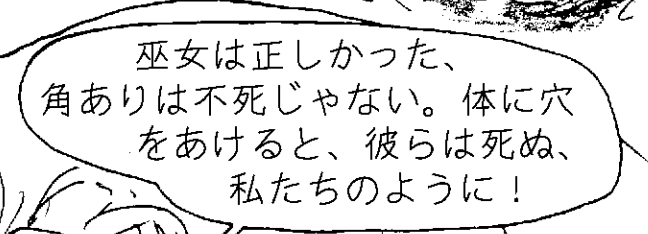 巫女は正しかった、
角ありは不死じゃない。体に穴
をあけると、彼らは死ぬ、
私たちのように！